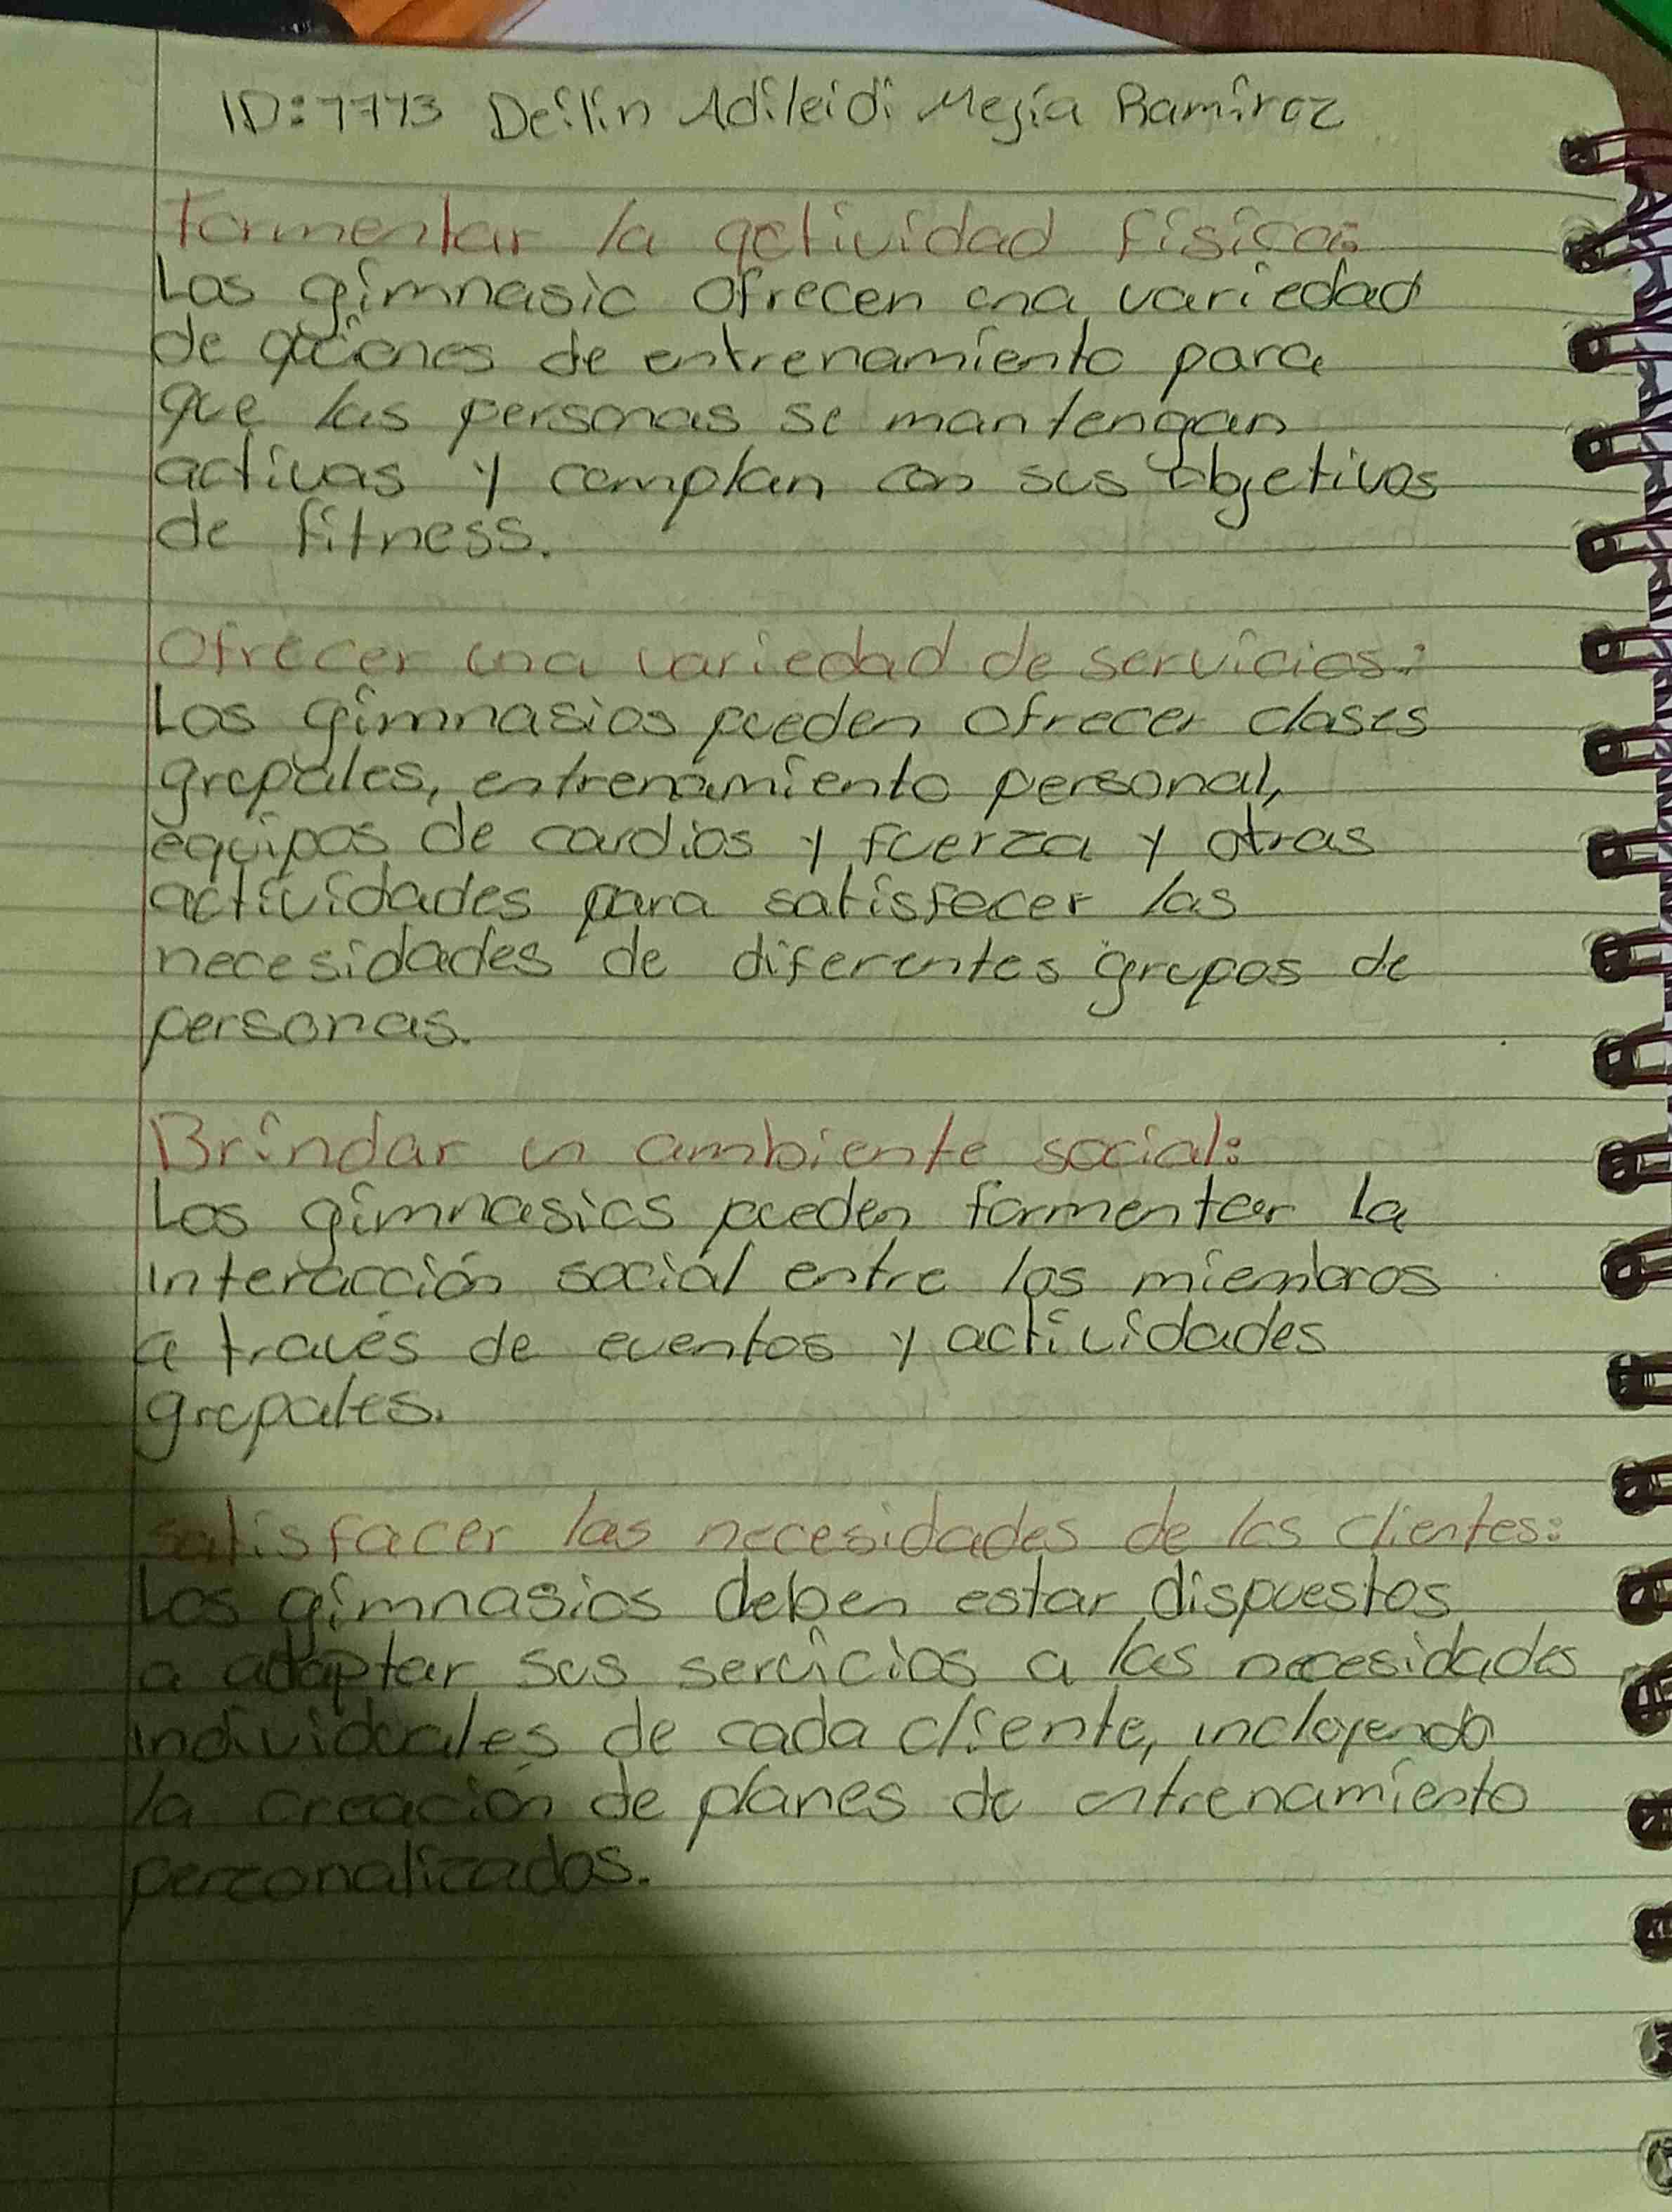 ID: 7773 Deilin Adileidi Mejía Ramirez
Formentar la actividad física:
Los gimnasio ofrecen una variedad
de opciones de entrenamiento para
que las personas se mantengan
activas y complan con sus objetivos
de fitness.
Ofrecer una variedad de servicios:
Los gimnasios pueden ofrecer clases
grupales, entrenamiento personal,
equipos de cardios y fuerza y otras
actividades para satisfecer las
necesidades de diferentes grupos de
personas.
Brindar un ambiente social:
Los gimnasios pueden formentar la
interacción social entre los miembros
a través de eventos y actividades
grupales.
satisfacer las necesidades de los clientes:
Los gimnasios deben estar dispuestos
a adaptar sus servicios a las necesidades
individuales de cada cliente, incluyendo
la creación de planes de entrenamiento
perzonalizados.